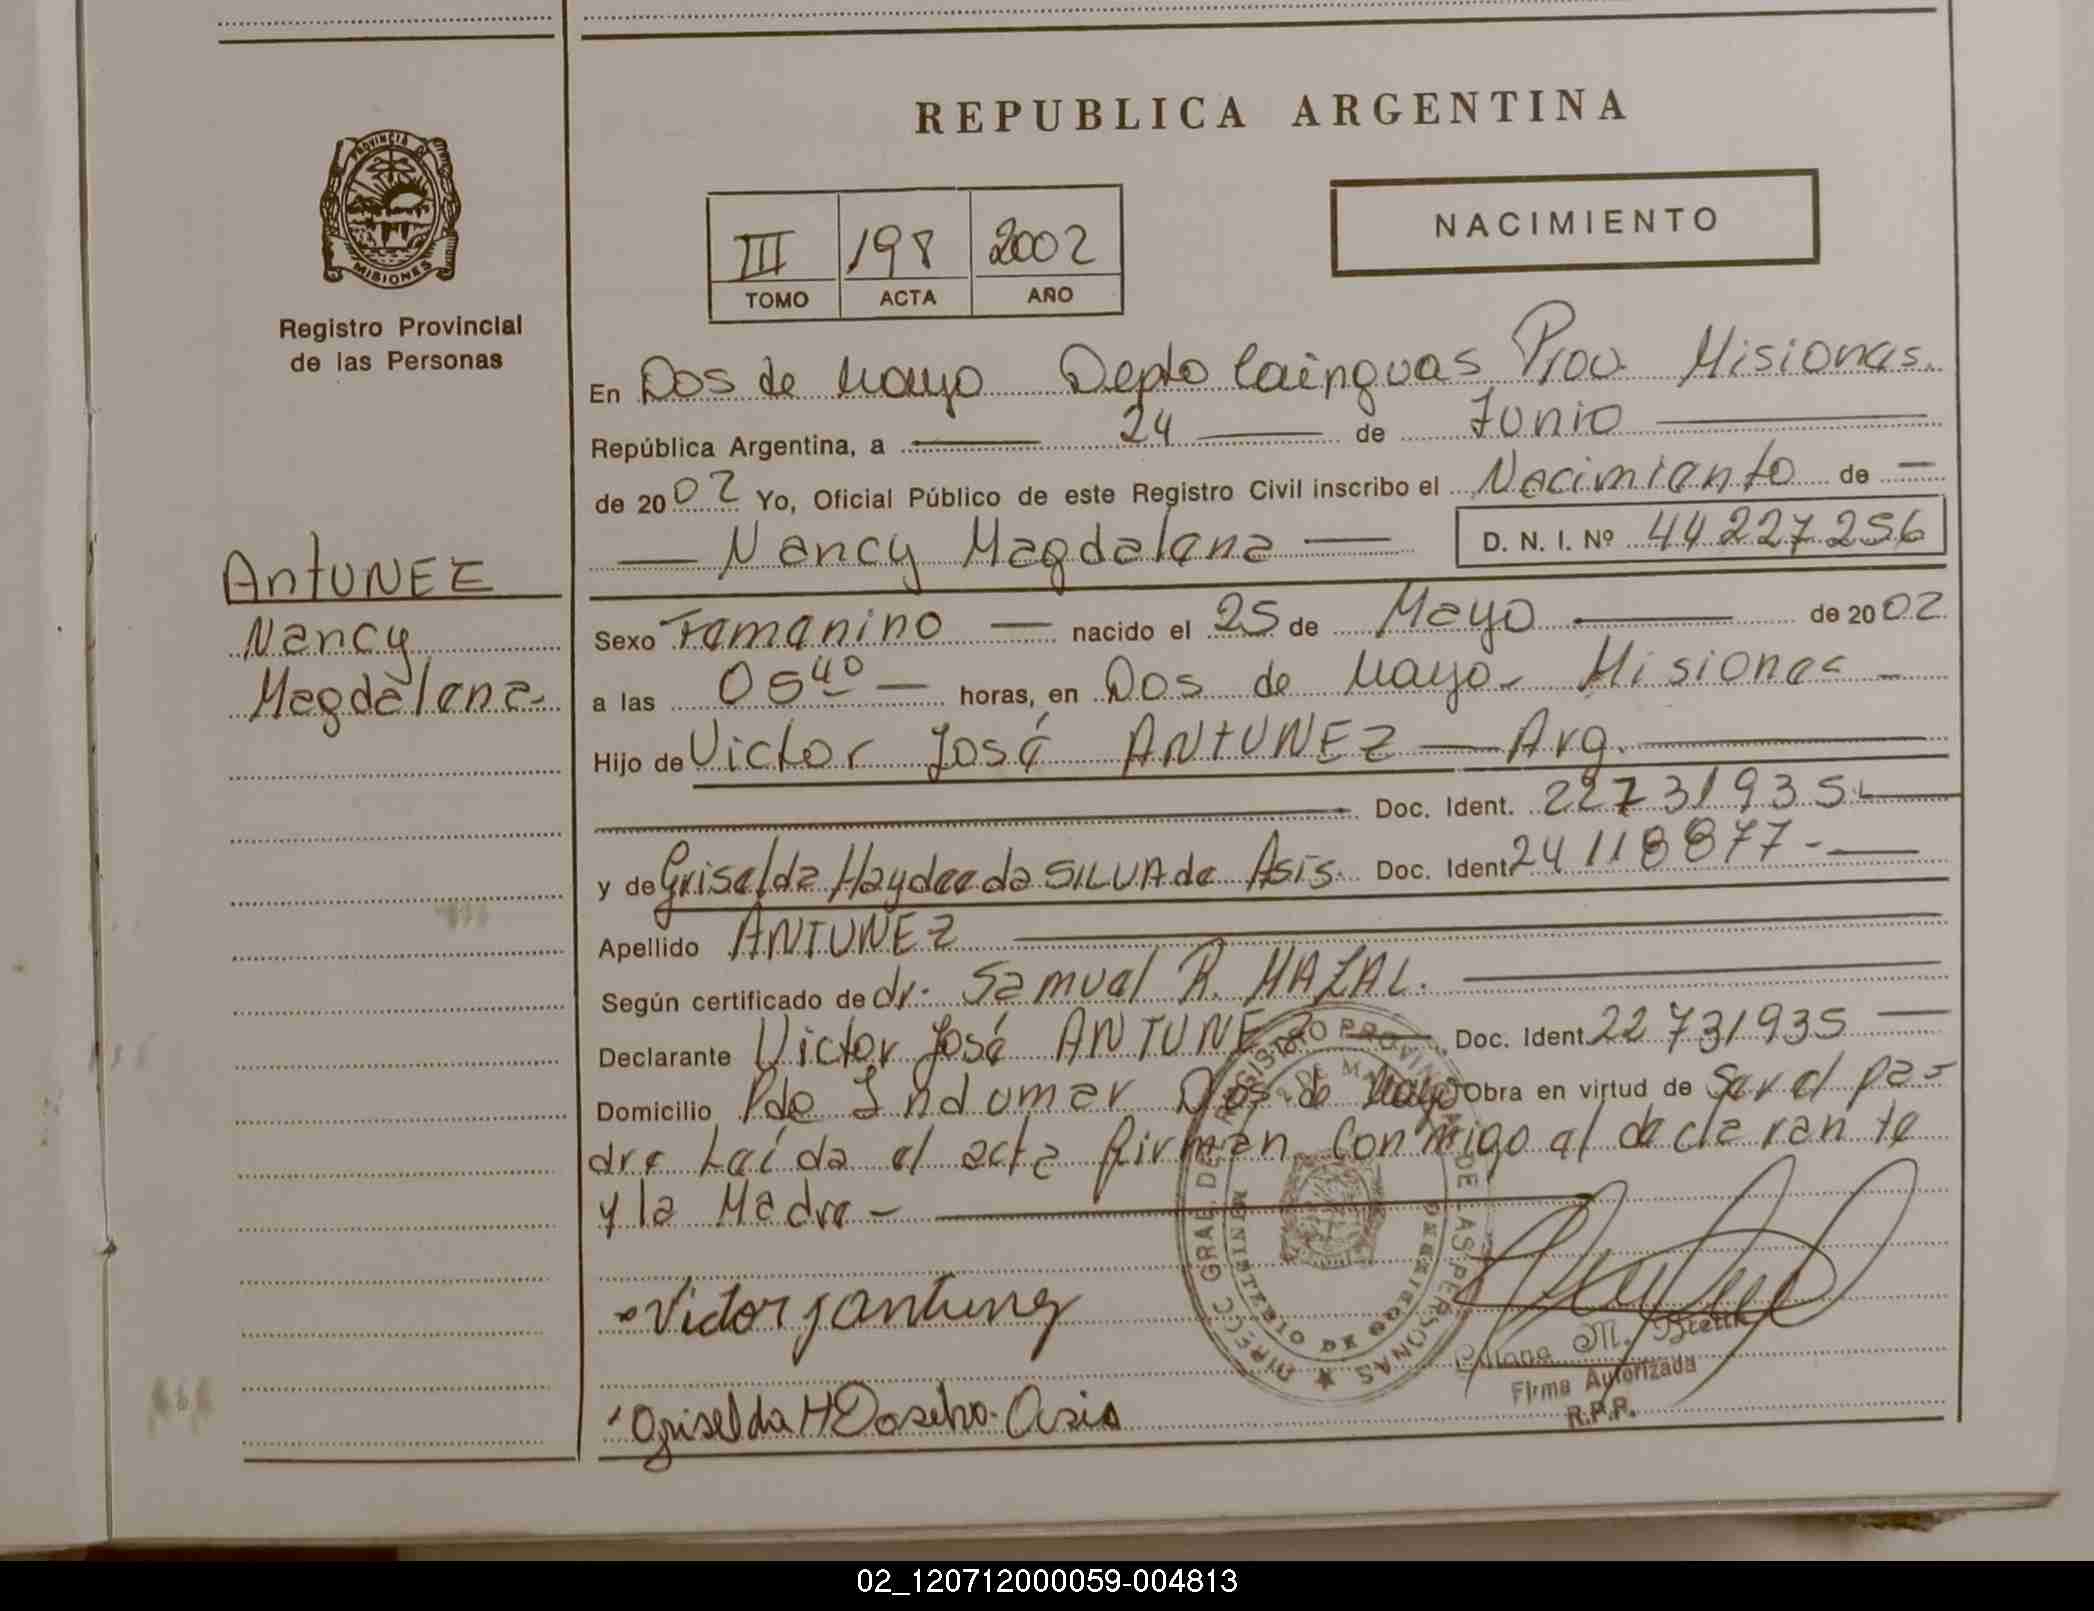 REPUBLICA ARGENTINA
PROVINCIA DE
MISIONES
Registro Provincial
de las Personas
III 198 2002
TOMO ACTA AÑO
NACIMIENTO
En Dos de Mayo Depto Cainguas Prov. Misiones.
República Argentina, a 24 de Junio
de 2002 Yo, Oficial Público de este Registro Civil inscribo el Nacimiento de
Nancy Magdalena D. N. I. Nº 44 227 256
ANTUNEZ
Nancy
Magdalena
Sexo Femenino nacido el 25 de Mayo de 2002
a las 05 40 horas, en Dos de Mayo - Misiones
Hijo de Victor José ANTUNEZ Arg.
Doc. Ident. 22731935
y de Griselda Haydee da SILVA de Asis Doc. Ident 24118877
Apellido ANTUNEZ
Según certificado de dr. Samuel R. MAZAL.
Declarante Victor José ANTUNEZ Doc. Ident. 22731935
Domicilio Pdo Dos de Mayo Obra en virtud de Ser el pa-
dre Leída el acta firman Conmigo el declarante
y la Madre -
DIRECC GRAL DEL REGISTRO PROVINCIAL DE LAS PERSONAS
MINISTERIO DE
Victor J antunez
Griselda H Da selva Asis
M.
Firma Autorizada
R.P.P.
02_120712000059-004813